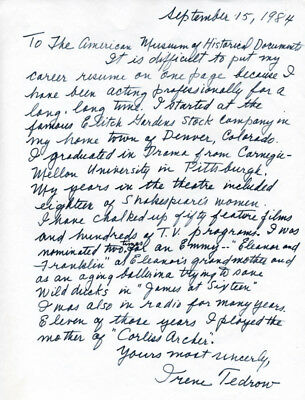 September 15, 1984
To The American Museum of Historical Documents
It is difficult to put my
career resume on one page because I
have been acting professionally for a
long, long time. I started at the
famous Elitch Gardens Stock Company in
my home town of Denver, Colorado.
I graduated in Drama from Carnegie-
Mellon University in Pittsburgh.
My years in the theatre included
eighteen of Shakespeare's women.
I have chalked up fifty feature films
and hundreds of T.V. programs. I was
nominated twice for an Emmy-- "Eleanor and
Franklin" as Eleanor's grandmother and
as an aging ballerina trying to save
wild ducks in "James at Sixteen"
I was also in radio for many years.
Eleven of those years I played the
mother of "Corliss Archer."
Yours most sincerely,
Irene Tedrow